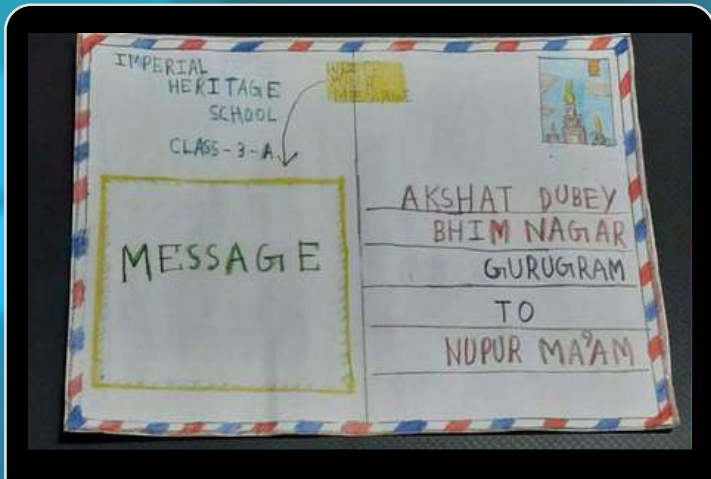 IMPERIAL
HERITAGE
SCHOOL
CLASS-3-A
MESSAGE
MESSAGE
AKSHAT DUBEY
BHIM NAGAR
GURUGRAM
TO
NUPUR MA'AM